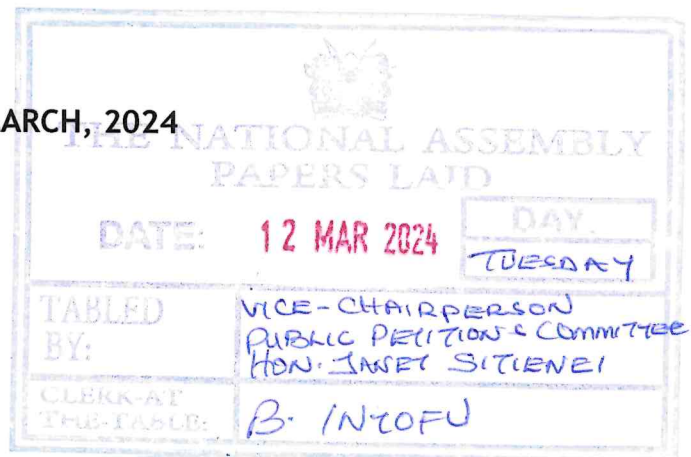 ARCH, 2024
THE NATIONAL ASSEMBLY
PAPERS LAID
DATE: 12 MAR 2024
DAY.
TUESDAY
TABLED BY:
VICE-CHAIRPERSON
PUBLIC PETITIONS COMMITTEE
HON. JANET SITIENEI
CLERK-AT THE-TABLE:
B. INYOFU